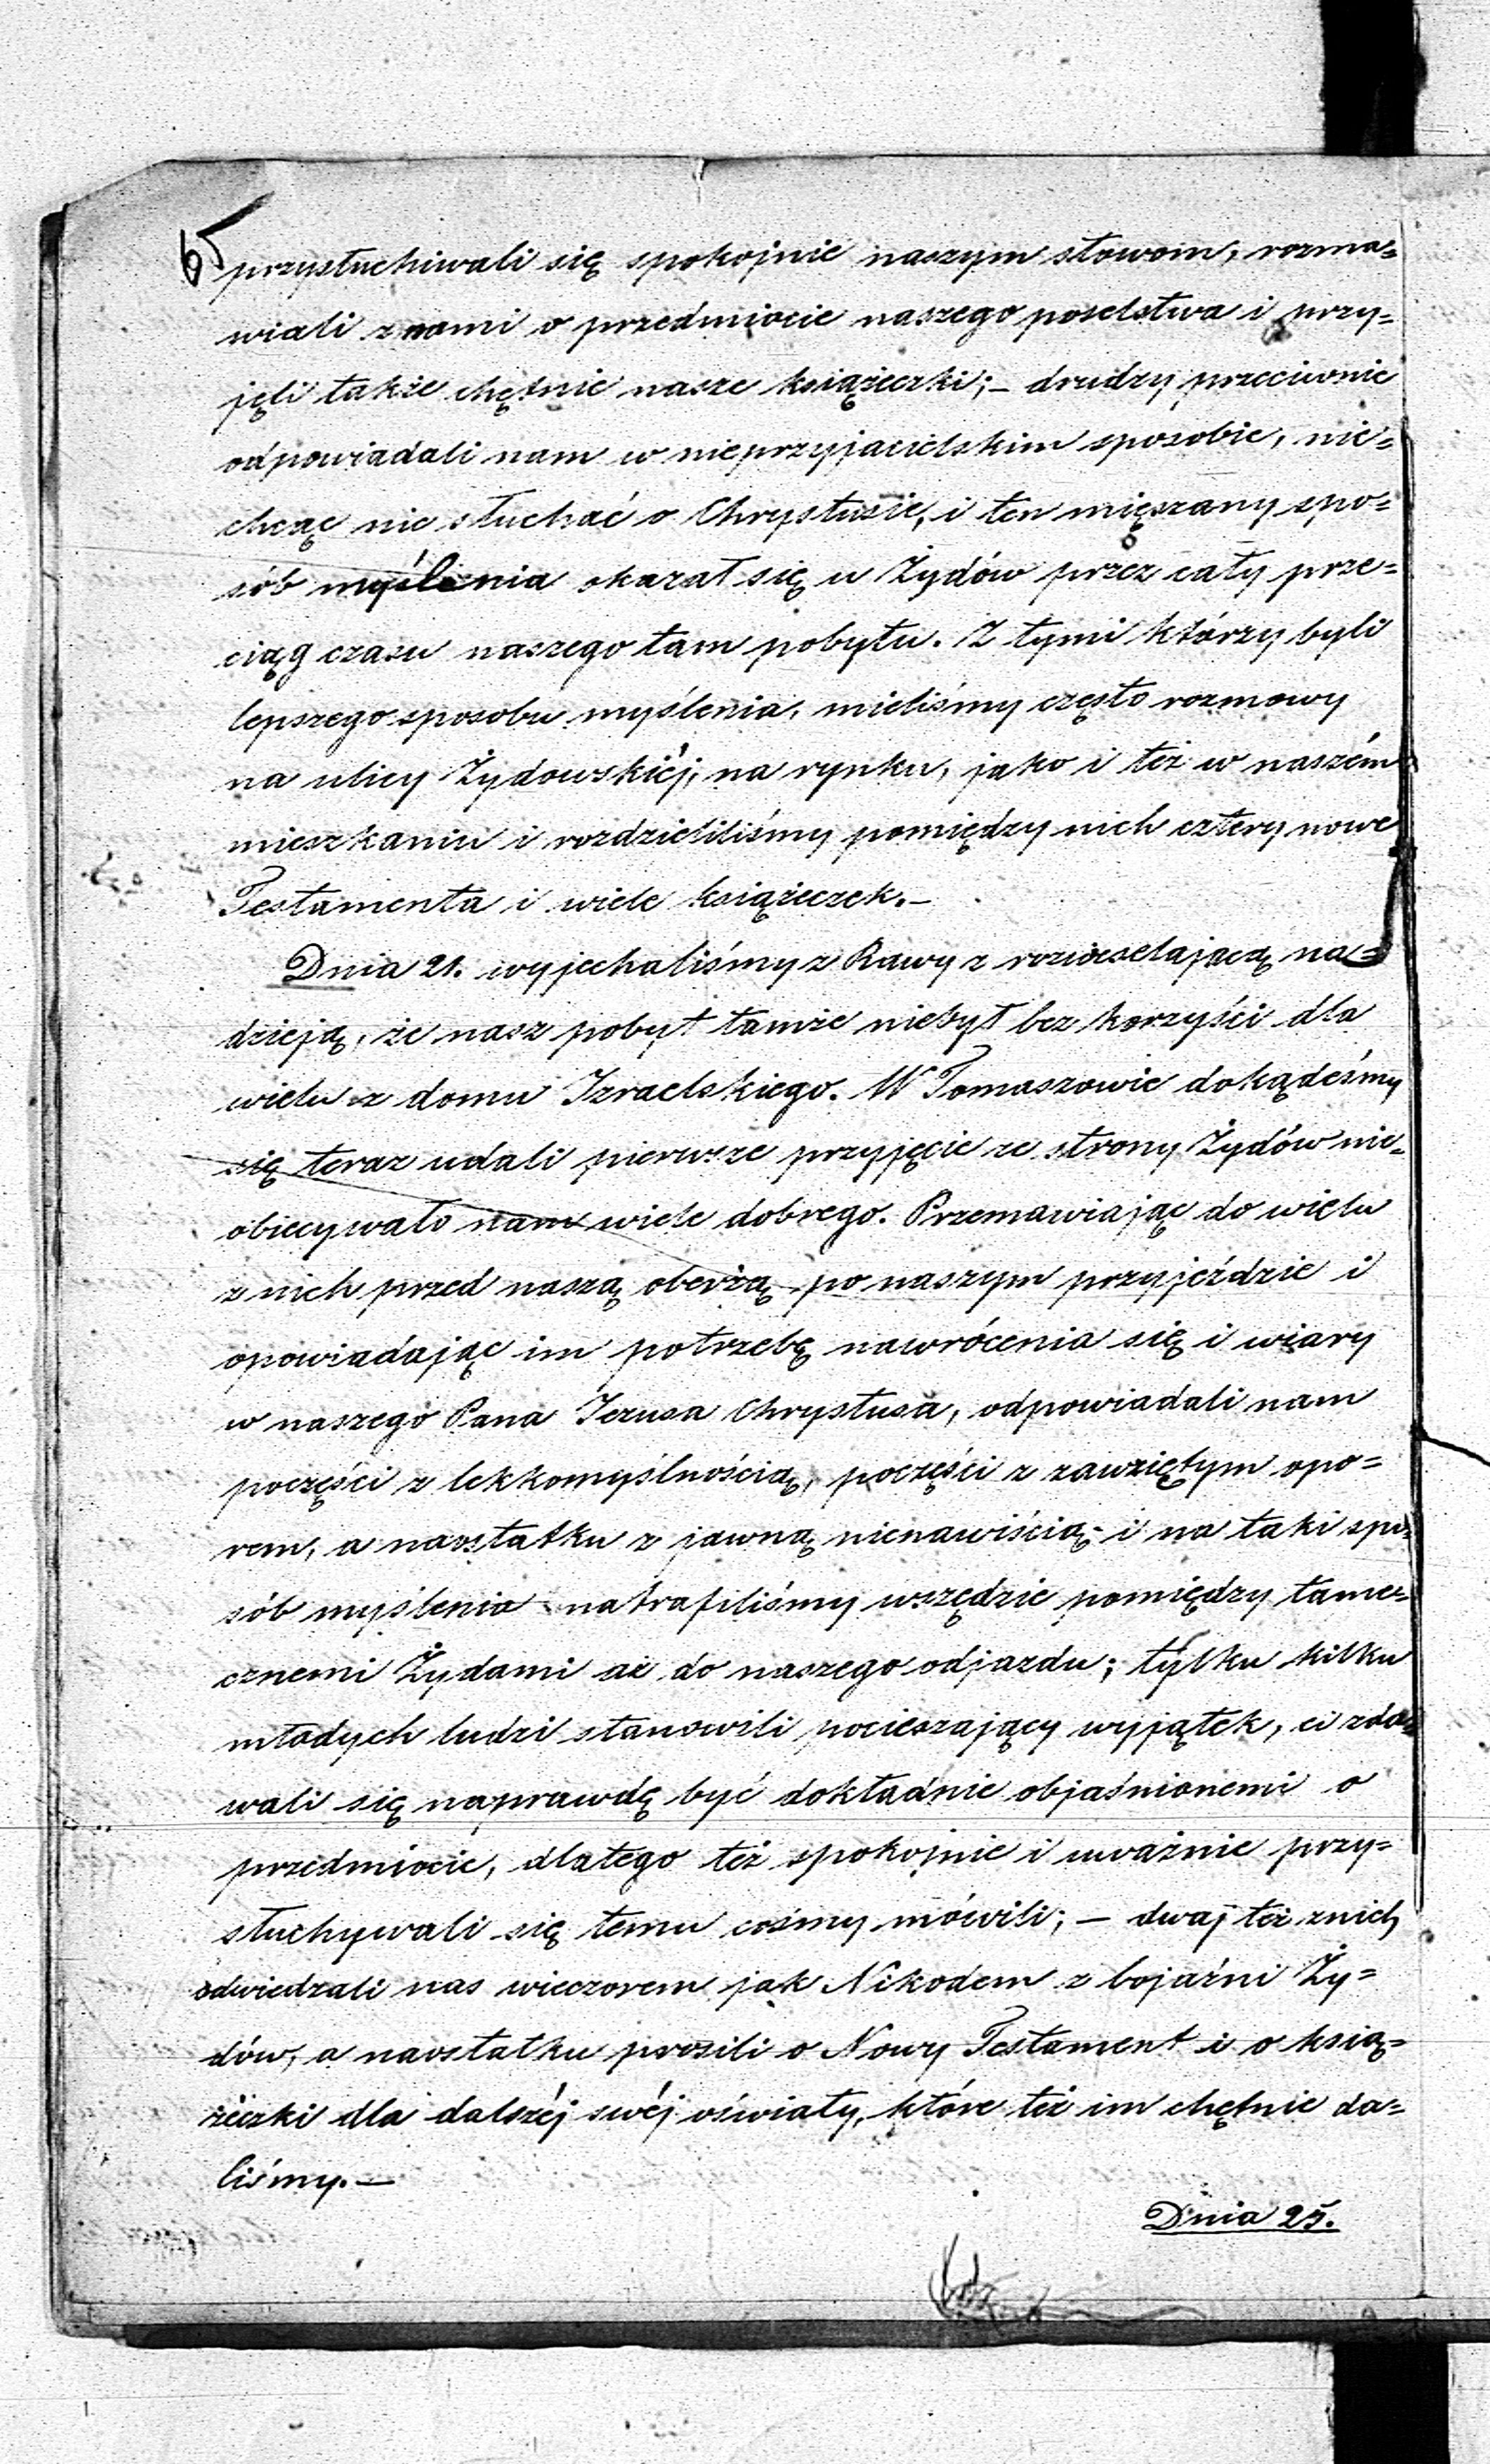 65
przysłuchiwali się spokojnie naszym słowom, rozma=
wiali z nami o przedmiocie naszego poselstwa i przy=
jęli także chętnie nasze książeczki; – drudzy przeciwnie
odpowiadali nam w nieprzyjacielskim sposobie, nie=
chcąc nic słuchać o Chrystusie, i ten mięszany spo=
sób myślenia okazał się u Żydów przez cały prze=
ciąg czasu naszego tam pobytu. Z tymi którzy byli
lepszego sposobu myślenia, mieliśmy często rozmowy
na ulicy Żydowskiéj, na rynku, jako i też w naszém
mieszkaniu i rozdzieliliśmy pomiędzy nich cztery nowe
Testamenta i wiele książeczek. –
Dnia 21. wyjechaliśmy z Rawy z rozweselającą na=
dzieją, że nasz pobyt tamże niebył bez korzyści dla
wielu z domu Izraelskiego. W Tomaszowie dokądeśmy
się teraz udali pierwsze przyjęcie ze strony Żydów nie=
obiecywało nam wiele dobrego. Przemawiając do wielu
z nich przed naszą oberżą po naszym przyjeździe i
opowiadając im potrzebę nawrócenia się i wiary
w naszego Pana Jezusa Chrystusa, odpowiadali nam
poczęści z lekkomyślnością, poczęści z zawziętym opo=
rem, a naostatku z jawną nienawiścią; i na taki spo=
sób myślenia natrafiliśmy wszędzie pomiędzy tame=
cznemi Żydami aż do naszego odjazdu; tylku kilku
młodych ludzi stanowili pocieszający wyjątek, ci zda=
wali się naprawdę być dokładnie objaśnionemi o
przedmiocie, dlatego też spokojnie i uważnie przy=
słuchywali się temu cośmy mówili; – dwaj też z nich
odwiedzali nas wieczorem jak Nikodem z bojaźni Ży=
dów, a naostatku prosili o Nowy Testament i o ksią=
żeczki dla dalszéj swéj oświaty, które też im chętnie da=
liśmy. –
Dnia 25.